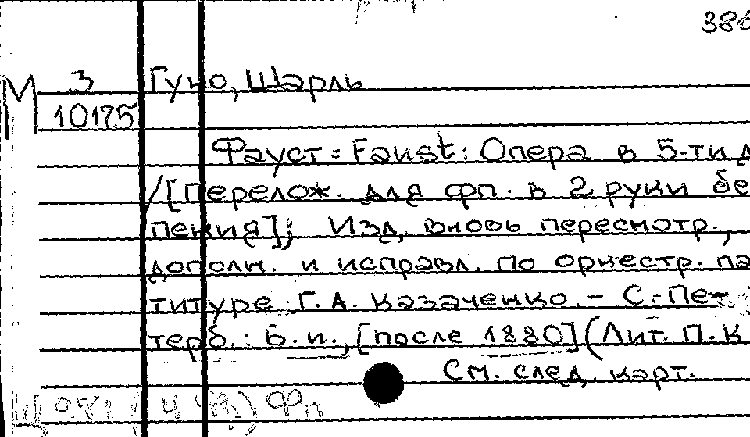 386
М 3 Гуно, Шарль
10175
Фауст = Faust: Опера в 5-ти д
/[Перелож. для фп. в 2 руки бе
пения]; Изд. вновь пересмотр.,
дополн. и исправл. по оркестр. па
титуре Г.А. Казаченко. – С.-Пет
терб.: Б.и., [после 1880] (Лит. П.К
См. след. карт.
Фп